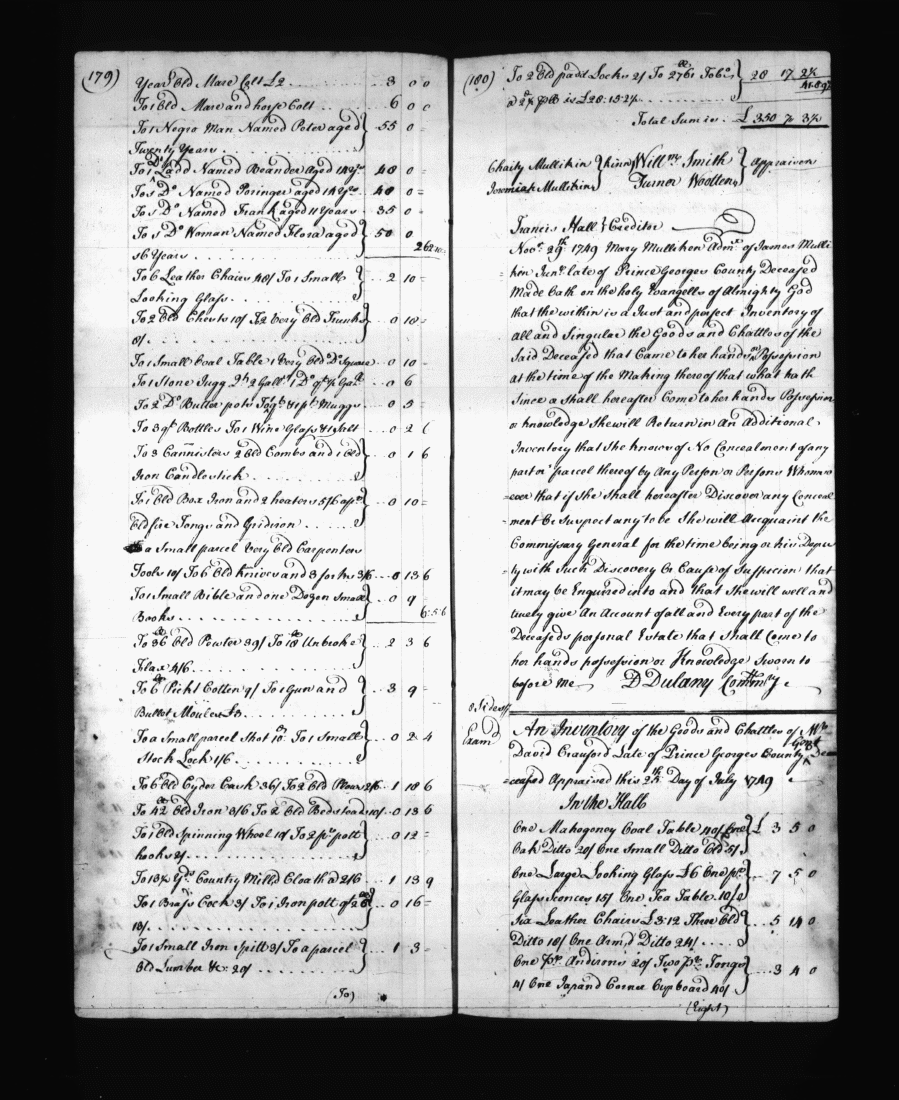 (179)
Year Old Mare Colt £2 . . . 3 0 0
To 1 Old Mare and horse Colt . . . 6 0 0
To 1 Negro Man Named Peter aged
Twenty Years . . . 55 0 =
To 1 Do Ladd Named Beander Aged 14 Yrs 48 0 =
To 1 Do Named Peringer aged 14 Yrs 40 0 =
To 1 Do Named Frank aged 11 Years . . 35 0 =
To 1 Do Woman Named Flora aged
16 Years . . . 50 0
To 6 Leather Chairs 40/ To 1 Small
Looking Glass . . . 2 10 =
To 2 Old Chests 10/ To 2 Very Old Trunks
8/ . . . 0 18 =
To 1 Small Oval Table 1 Very Old Do Square . . 0 10 =
To 1 Stone Jugg 2 Gall 1 Do . . 0 6 =
To 2 Do Butter pots & 1 pt Muggs . . 0 5 =
To 3 qt Bottles To 1 Wine Glass & 1 Salt . . 0 2 6
To 3 Cannisters 2 Old Combs and 1 Old
Iron Candlestick . . . 0 1 6
To 1 Old Box Iron and 2 heaters 5/6 a pr
Old fire Tongs and Gridiron . . . 0 10 =
To a Small parcel Very Old Carpenters
Tools 10/ To 6 Old Knives and 3 forks 3/6 . . 0 13 6
To 1 Small Bible and one Dozen Small
Books . . . 0 9 =
6:5:6
To 36 lb Old Pewter 39/ To 18 lb Unbroke
Flax 4/6 . . . 2 3 6
To 6 lb Pickt Cotten 9/ To 1 Gun and
Bullet Moulds £3 . . . 3 9 =
To a Small parcel Shot 10d To 1 Small
Stock Lock 1/6 . . . 0 2 4
To 6 Old Cyder Cask 36/ To 2 Old Plows 2/6 . . 1 18 6
To 42 lb Old Iron 3/6 To 2 Old Bedsteads 10/ . . 0 13 6
To 1 Old Spinning Wheel 10/ To 2 pr pott
hooks 2/ . . . 0 12 =
To 13½ Yds Country Mill'd Cloath a 2/6 . . 1 13 9
To 1 Brass Cock 3/ To 1 Iron pott of 28 lb
13/ . . . 0 16 =
To 1 Small Iron Spitt 3/ To a parcel
Old Lumber &c 20/ . . . 1 3 =
(To)
(180) To 2 Old padd Locks 2/ To 2761 Tobo
is £28:15:2½ . . . 28 17 2½
Total Sum is . . £ 350 7 3½
Charity Mullikin } kinn Willm Smith } Appraisers
Jeremiah Mullikin Turner Wootten
Francis Hall } Creditor
Novr 29th 1749 Mary Mulliken Admx of James Mulli
= kin Junr late of Prince Georges County Deceased
Made Oath on the holy Evangells of Almighty God
that the within is a Just and perfect Inventory of
all and Singular the Goods and Chattles of the
Said Deceased that Came to her hands or Possession
at the time of the Making thereof that what hath
Since or Shall hereafter Come to her hands Possession
or knowledge She will Return in An Additional
Inventory that She knows of No Concealment of any
part or parcel thereof by Any Person or Persons Whomso
= ever that if She Shall hereafter Discover any Conceal
= ment Or Suspect any to be She will Acquaint the
Commissary General for the time being or his Depu
= ty with Such Discovery Or Cause of Suspicion that
it may be Enquired into and that She will well and
truely give An Account of all and Every part of the
Deceaseds personal Estate that Shall Come to
her hands possession or Knowledge Sworn to
before Me D Dulany Commry
8 Sides
Exam'd
An Inventory of the Goods and Chattles of Mr
David Craufurd Late of Prince Georges County De
= ceased Appraised this 25th Day of July 1749
In the Hall
One Mahogoney Oval Table 40/ One
Oak Ditto 20/ One Small Ditto Old 5/ £ 3 5 0
One Large Looking Glass £6 One pr
Glass Sconces 15/ One Tea Table 10/ . . 7 5 0
Six Leather Chairs £3:12 Three Old
Ditto 18/ One Arm'd Ditto 24/ . . . 5 14 0
One pr Andirons 20/ Two pr Tongs
4/ One Japand Corner Cupboard 40/ . . 3 4 0
(Eight)